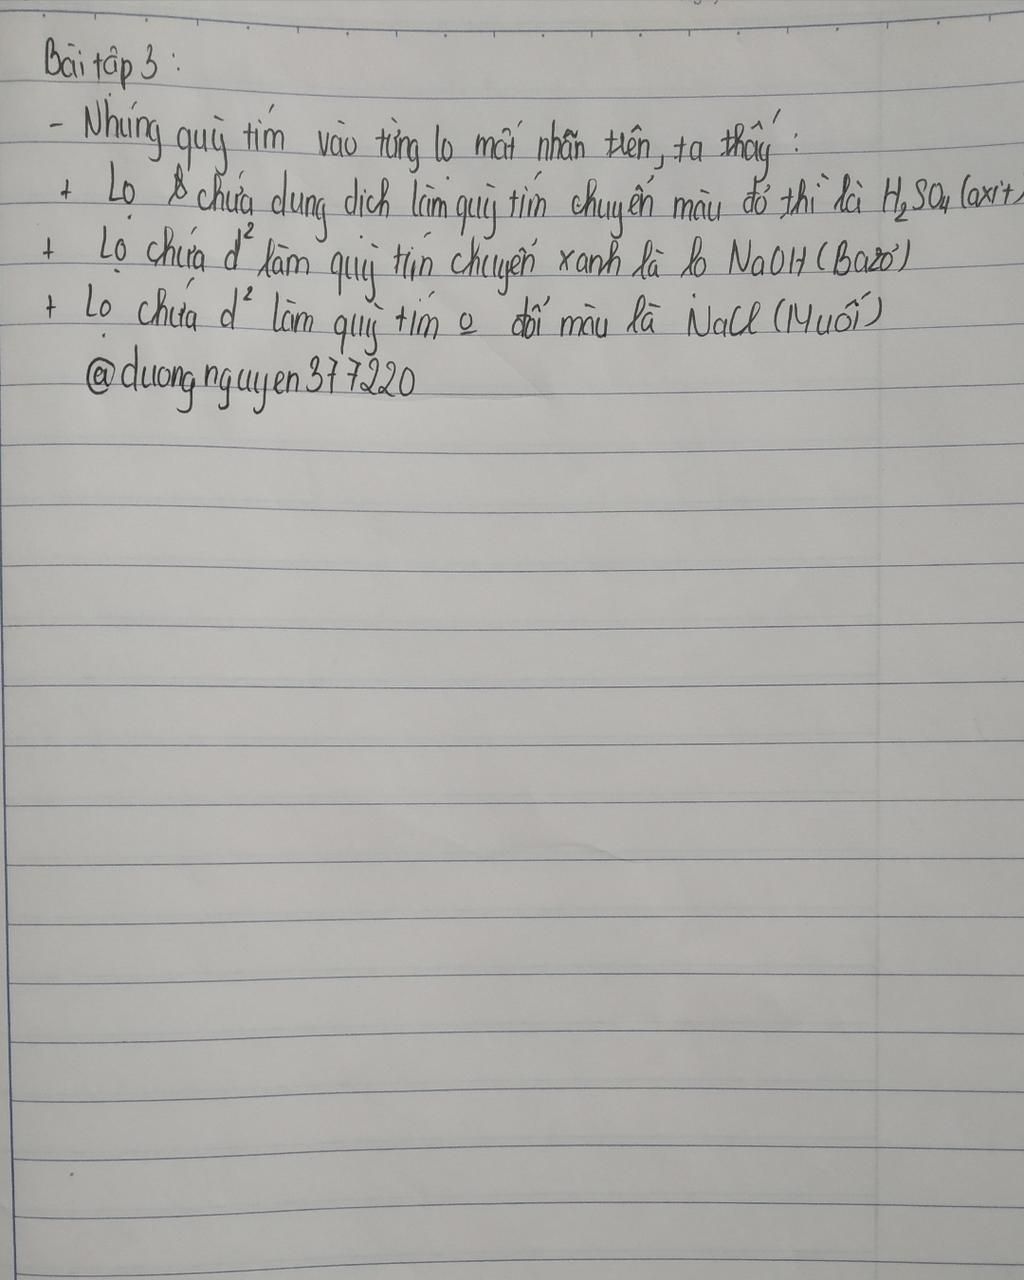 Bài tập 3 :
- Nhúng quỳ tím vào từng lọ mất nhãn trên, ta thấy :
+ Lọ chứa dung dịch làm quỳ tím chuyển màu đỏ thì là H₂SO₄ (axit)
+ Lọ chứa d² làm quỳ tím chuyển xanh là lọ NaOH (Bazơ)
+ Lọ chứa d² làm quỳ tím o đổi màu là NaCl (Muối)
@duongnguyen377220